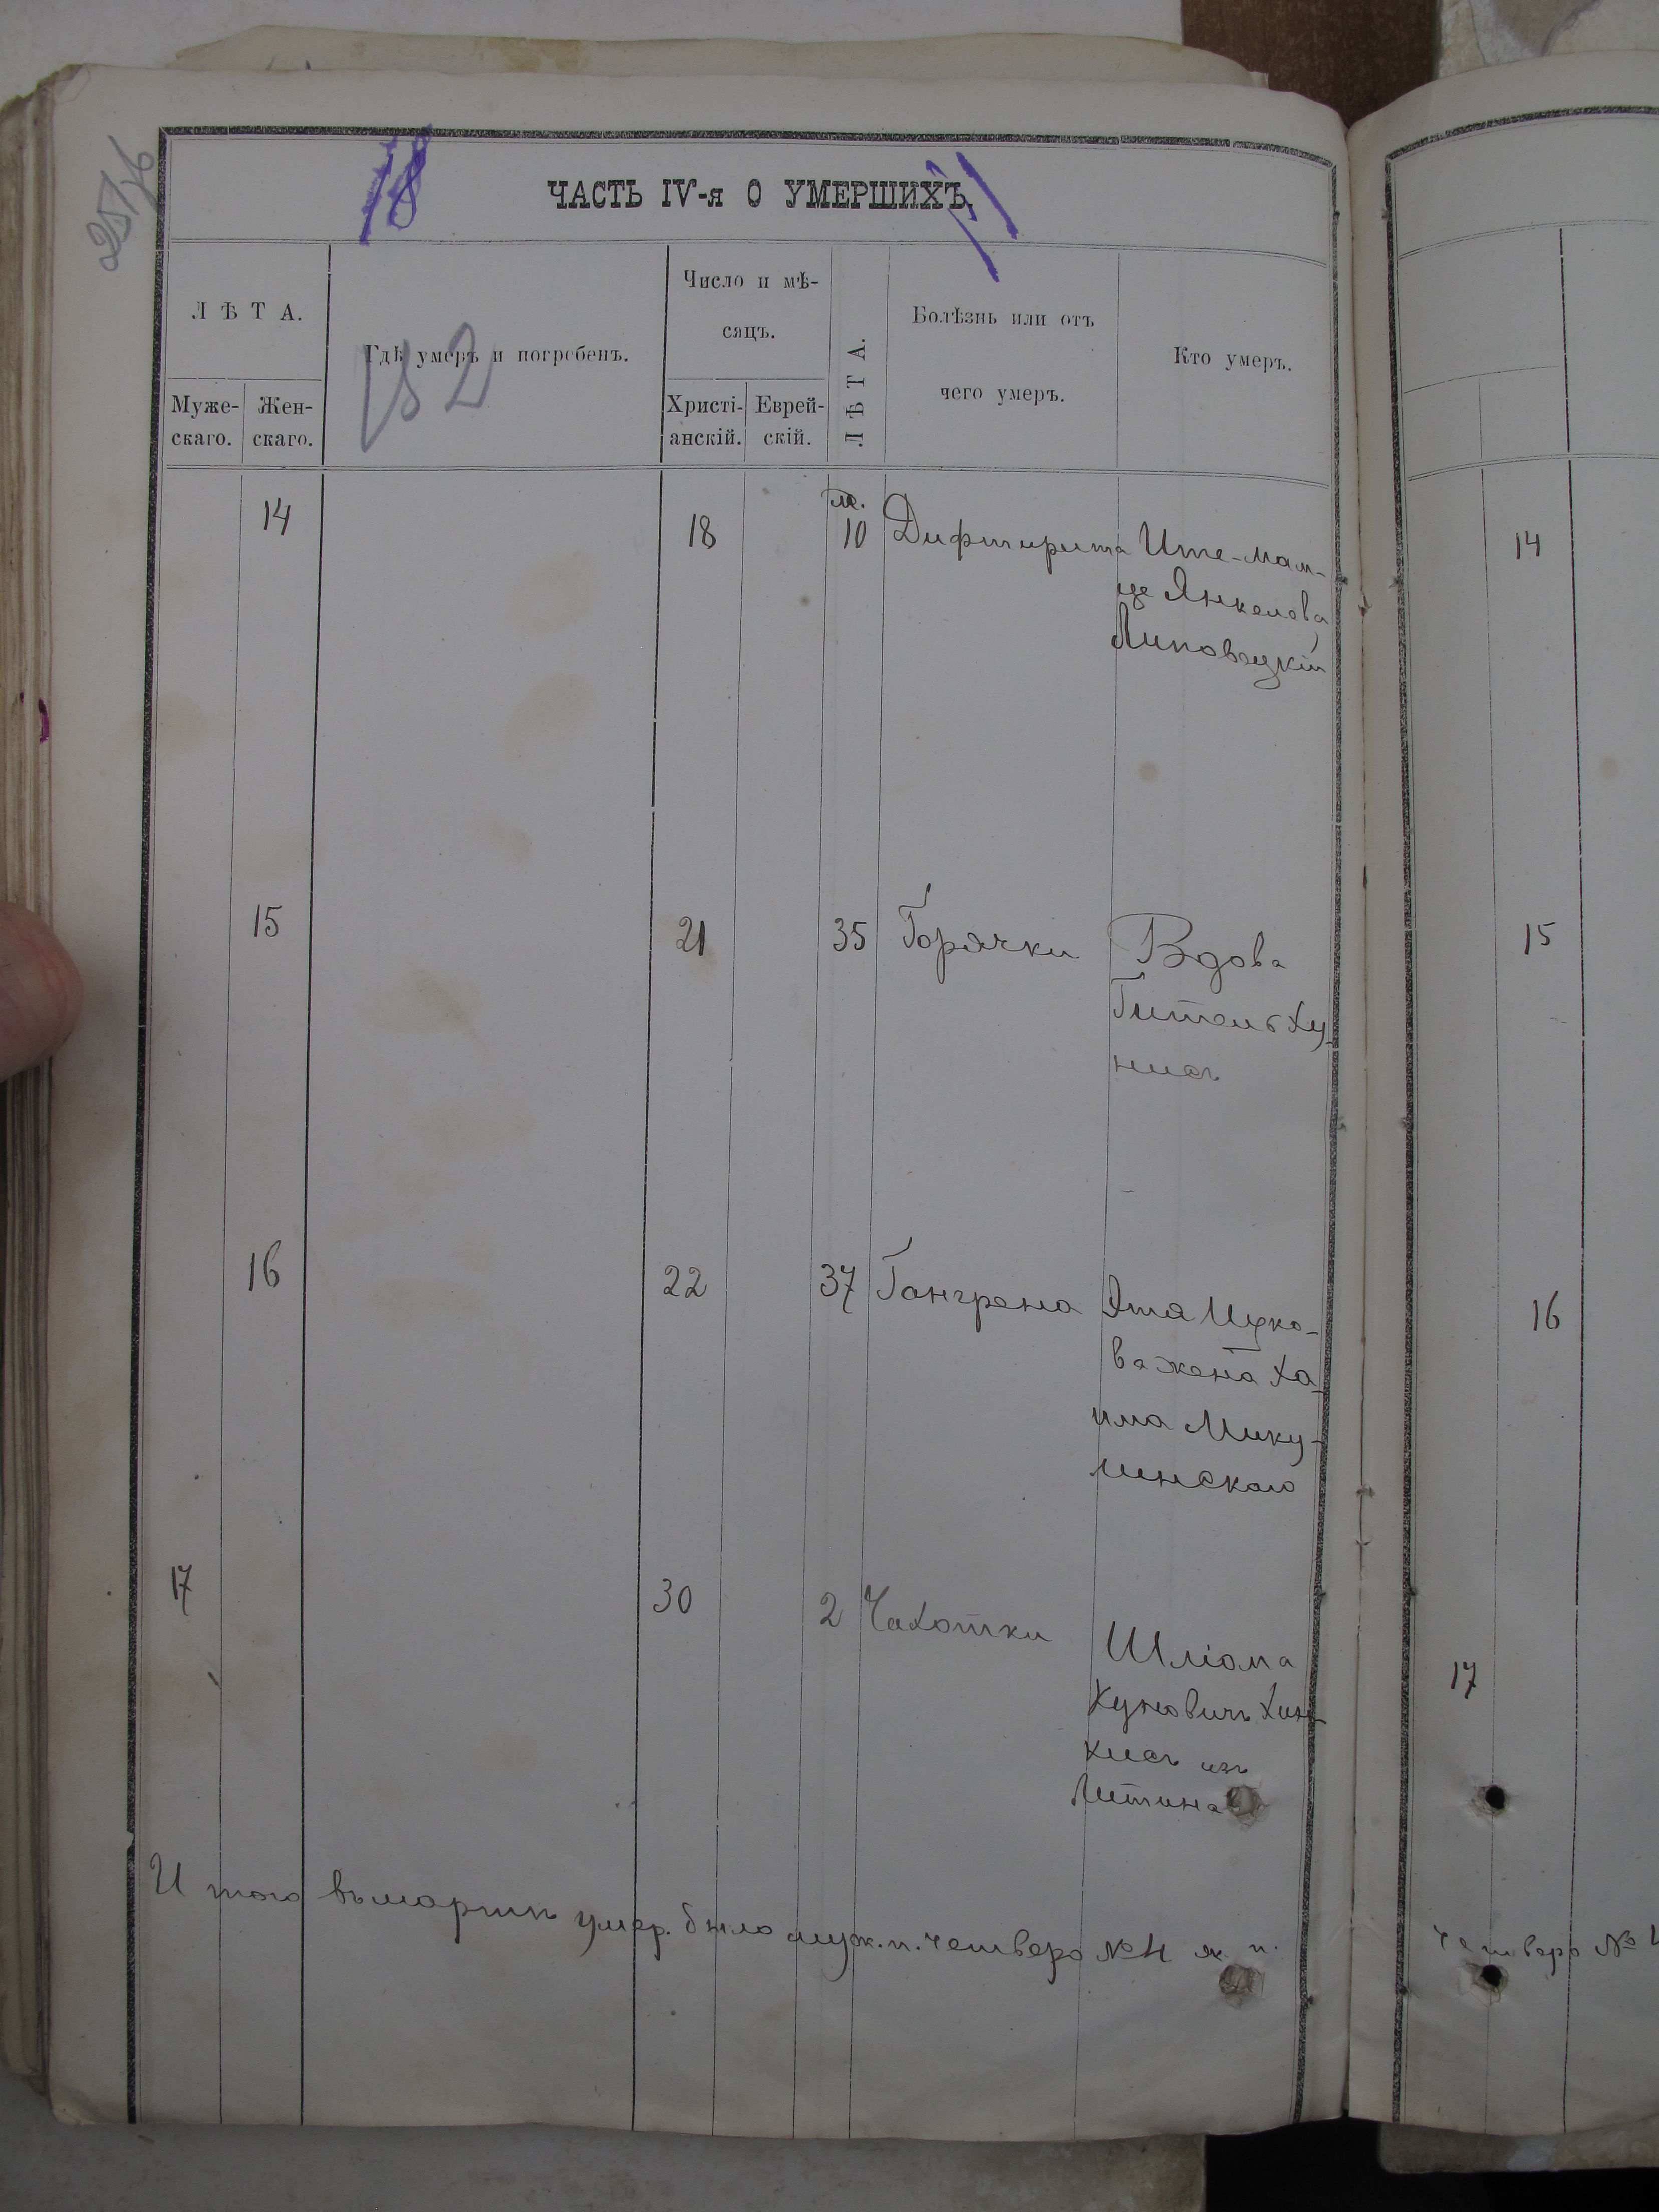 18
ЧАСТЬ IV-я О УМЕРШИХЪ.
ЛѢТА.
Муже-
скаго.
Жен-
скаго.
Гдѣ умеръ и погребенъ.
Число и мѣ-
сяцъ.
Христі-
анскій.
Еврей-
скій.
ЛѢТА.
Болѣзнь или отъ
чего умеръ.
Кто умеръ.
14 18 м. 10 Дифтирита Ите-Мам-
це Янкелева
Липовецкій
15 21 35 Горячки Вдова
Гитель Ху-
нисъ
16 22 37 Гангрена Этя Ицко-
ва жена Ха-
има Мику-
линскаго
17 30 2 Чахотки Шліома
Хуновичъ Хин-
кисъ изъ
Литина
Итого въ мартѣ умер. было муж. п. четверо № 4 ж. п.
14
15
16
17
четверо №